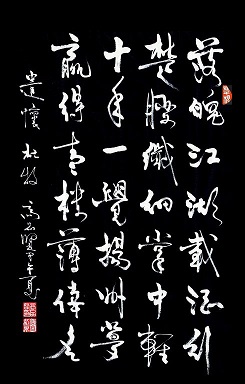 落魄江湖載酒行
楚腰纖細掌中輕
十年一覺揚州夢
贏得青樓薄倖名
遣懷 杜牧